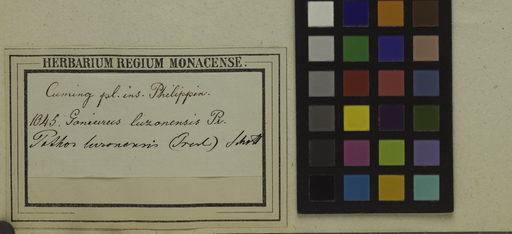 HERBARIUM REGIUM MONACENSE.
Cuming pl. ins. Philippin.
1845. Goniurus luzonensis Pr.
Pothos luzonensis (Presl) Schott